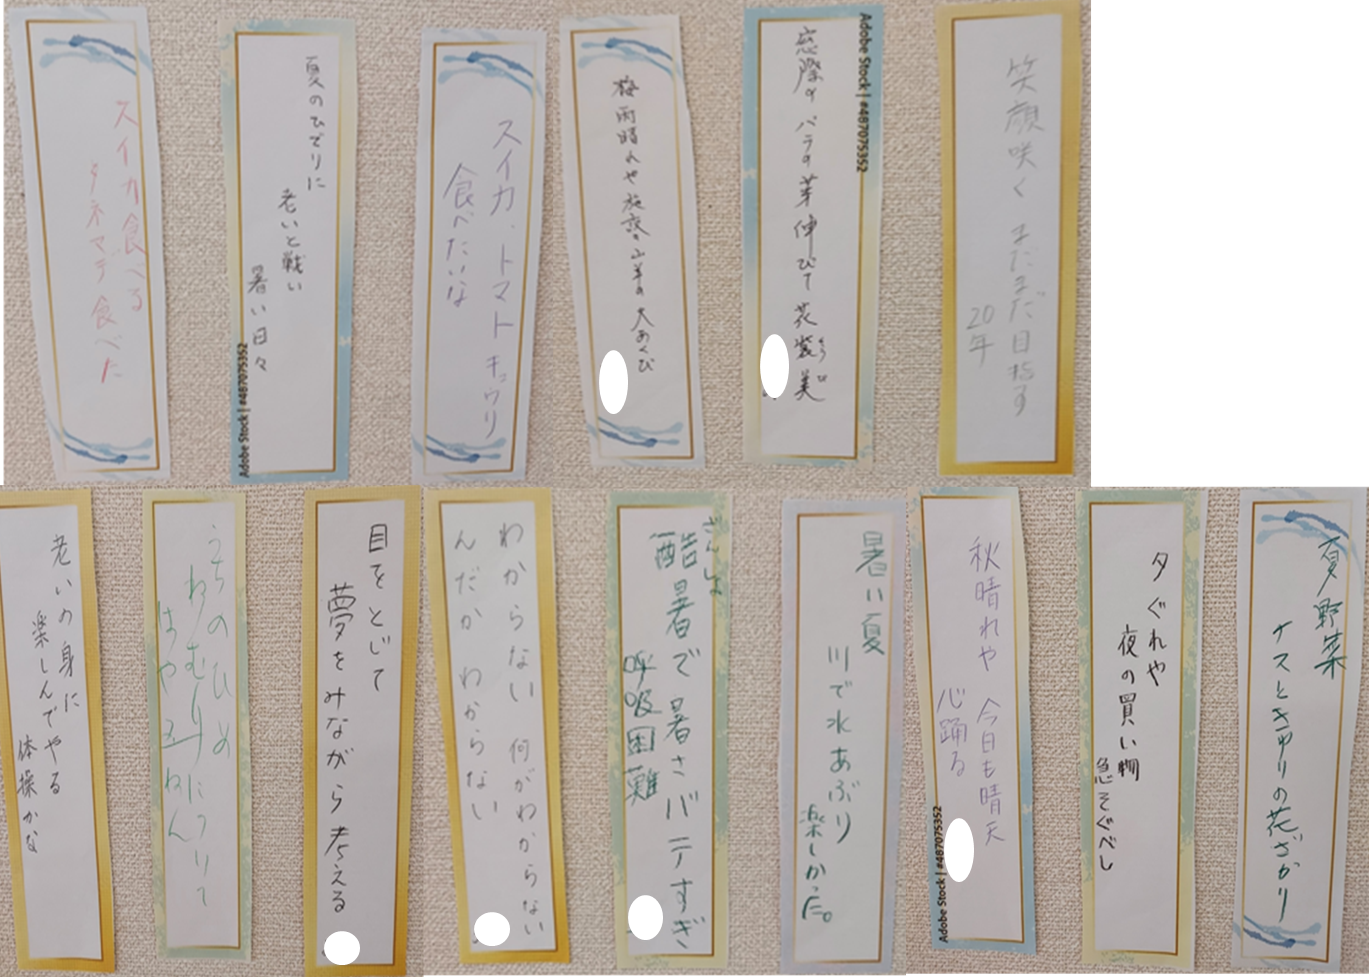 スイカ食べる
タネマデ食べた
夏のひでりに
老いと戦い
暑い日々
Adobe Stock | #487075352
スイカ、トマトキュウリ
食べたいな
梅雨晴れや施設の山羊の大あくび
窓際のバラの芽伸びて花装美
そうび
Adobe Stock | #487075352
笑顔咲くまだまだ目指す
20年
老いの身に
楽しんでやる
体操かな
うちのひめ
ねむりにつりて
はや五ねん
目をとじて
夢をみながら考える
わからない何がわからない
んだかわからない
ざんしょ
酷暑で暑さバテすぎ
呼吸困難
暑い夏
川で水あぶり
楽しかった。
秋晴れや今日も晴天
心踊る
Adobe Stock | #487075352
夕ぐれや
夜の買い物
急そぐべし
夏野菜
ナスときゅりの花ざかり